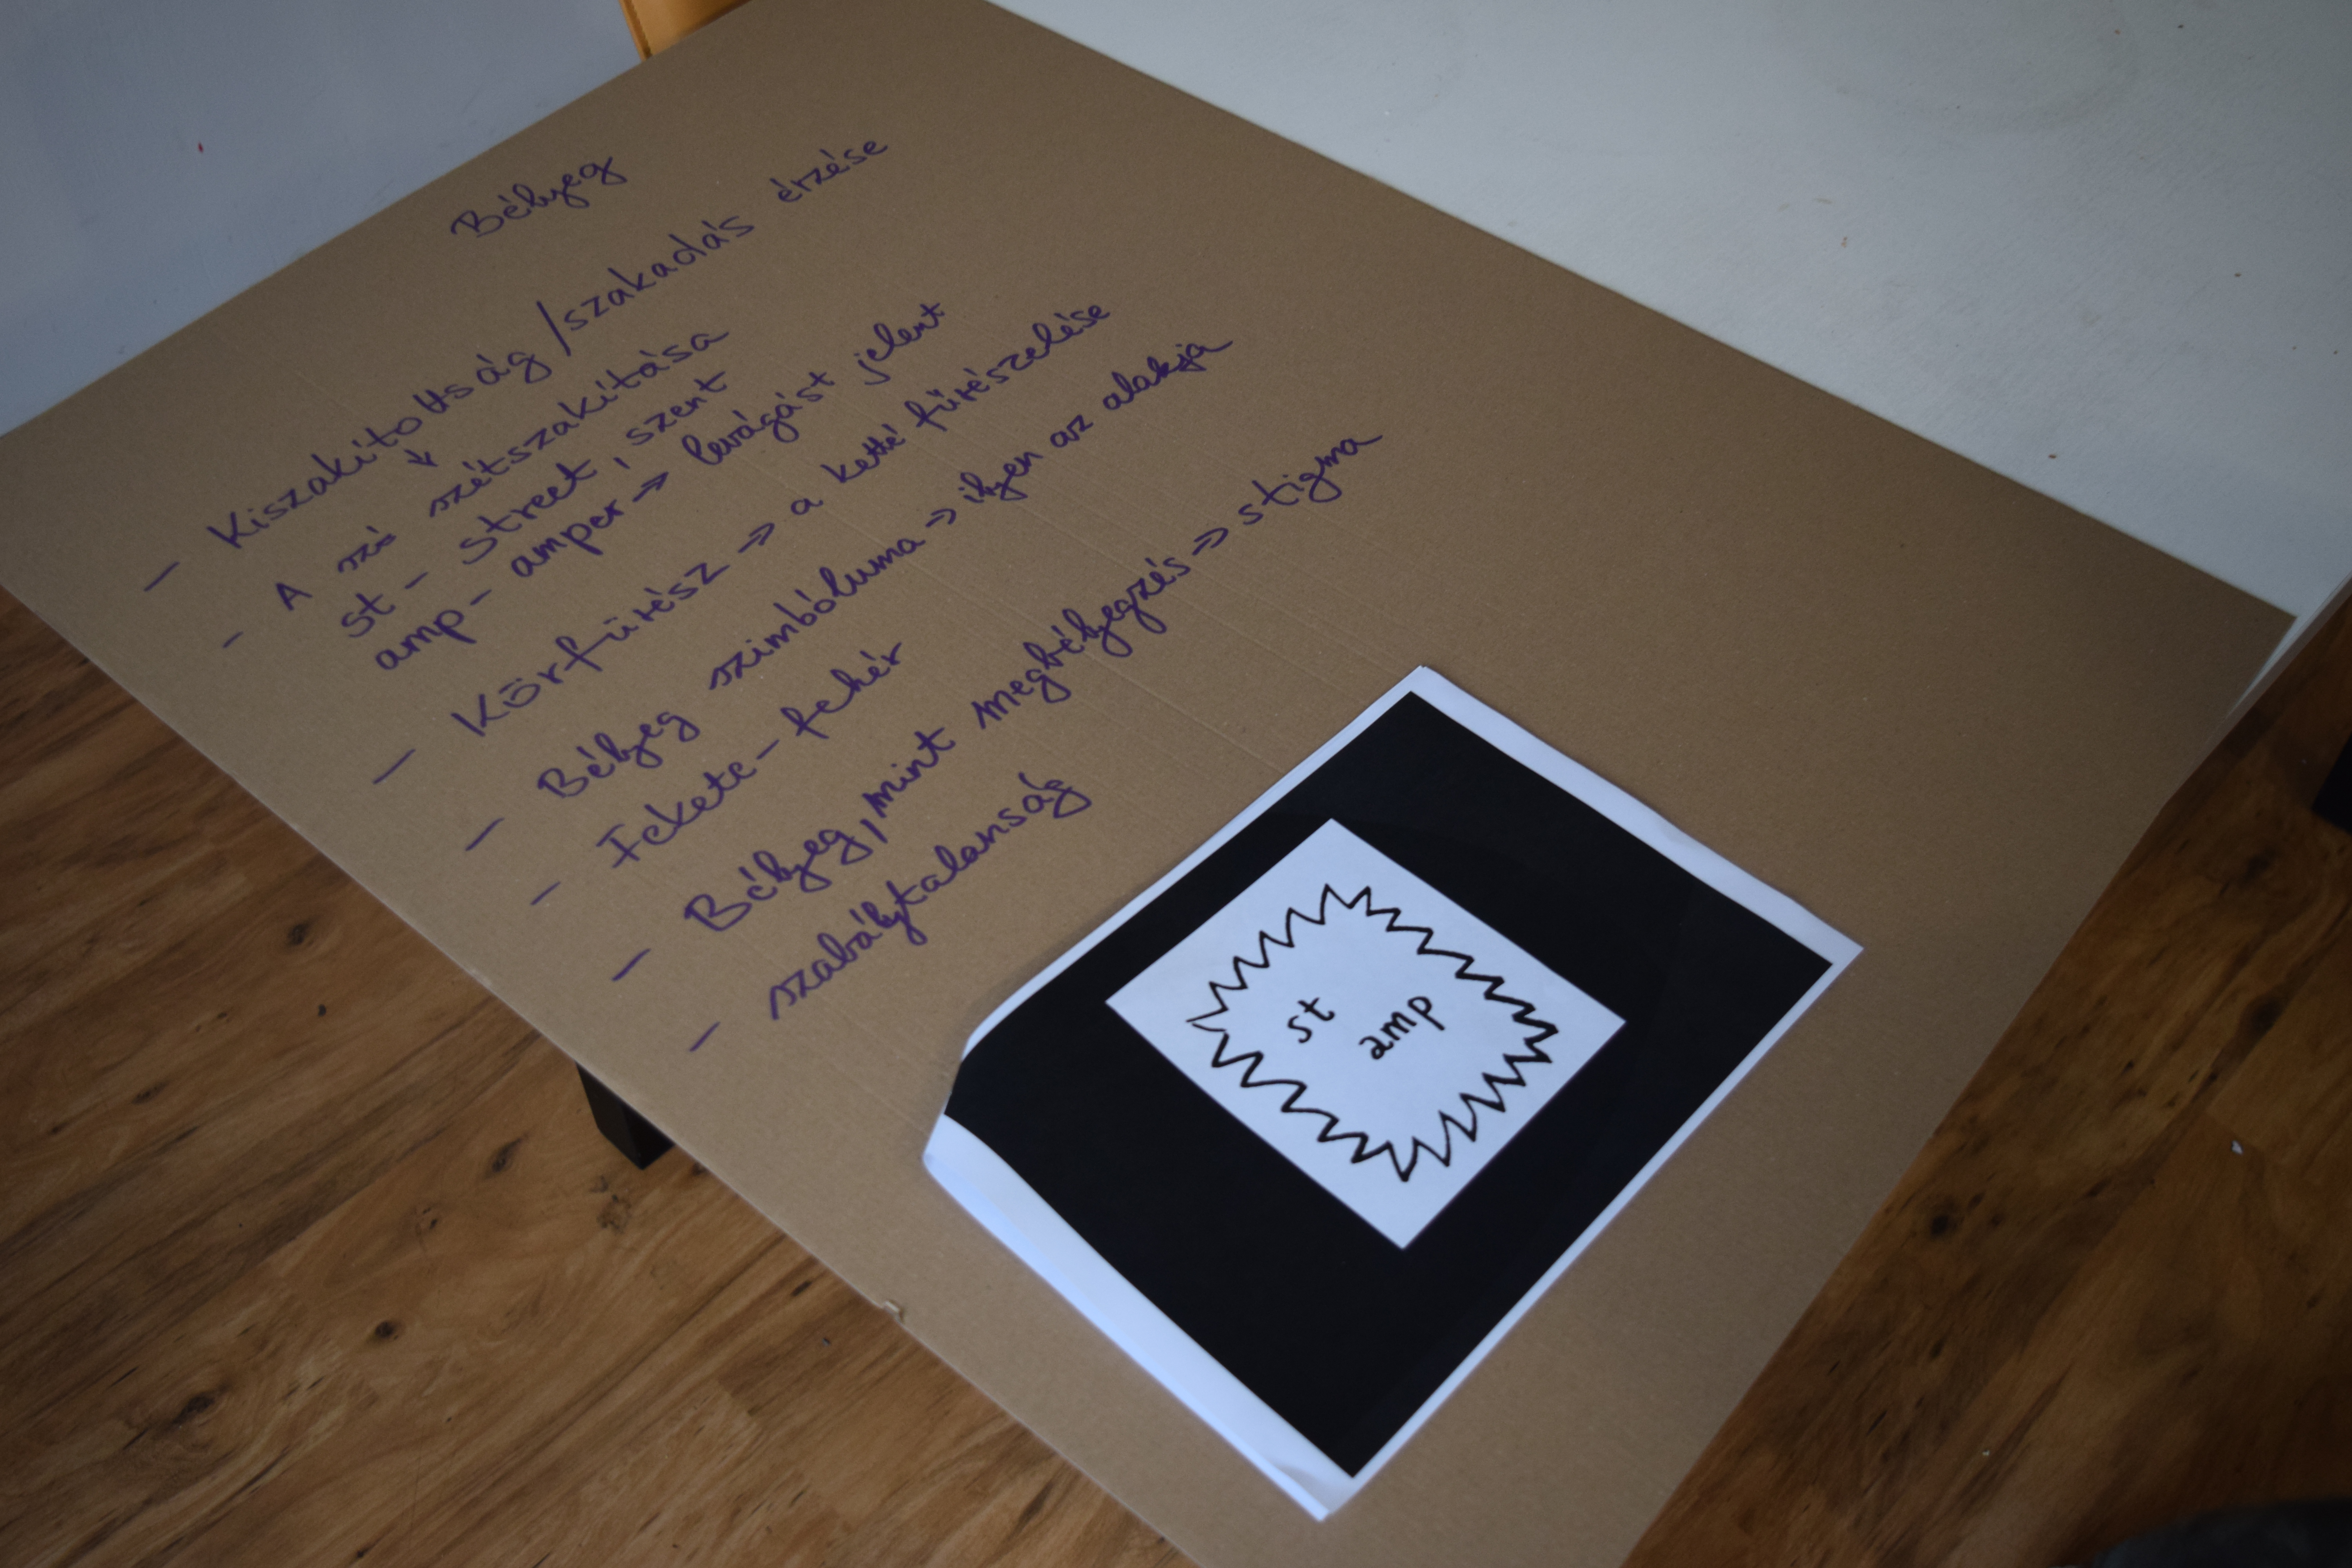 Bélyeg
- Kiszakítottság/szakadás érzése
↓
- A szó szétszakítása
st - street, szent
amp - amper → levágást jelent
- Körfűrész => a ketté fűrészelése
- Bélyeg szimbóluma => ilyen az alakja
- Fekete - fehér
- Bélyeg, mint megbélyegzés => stigma
- szabálytalanság
st
amp